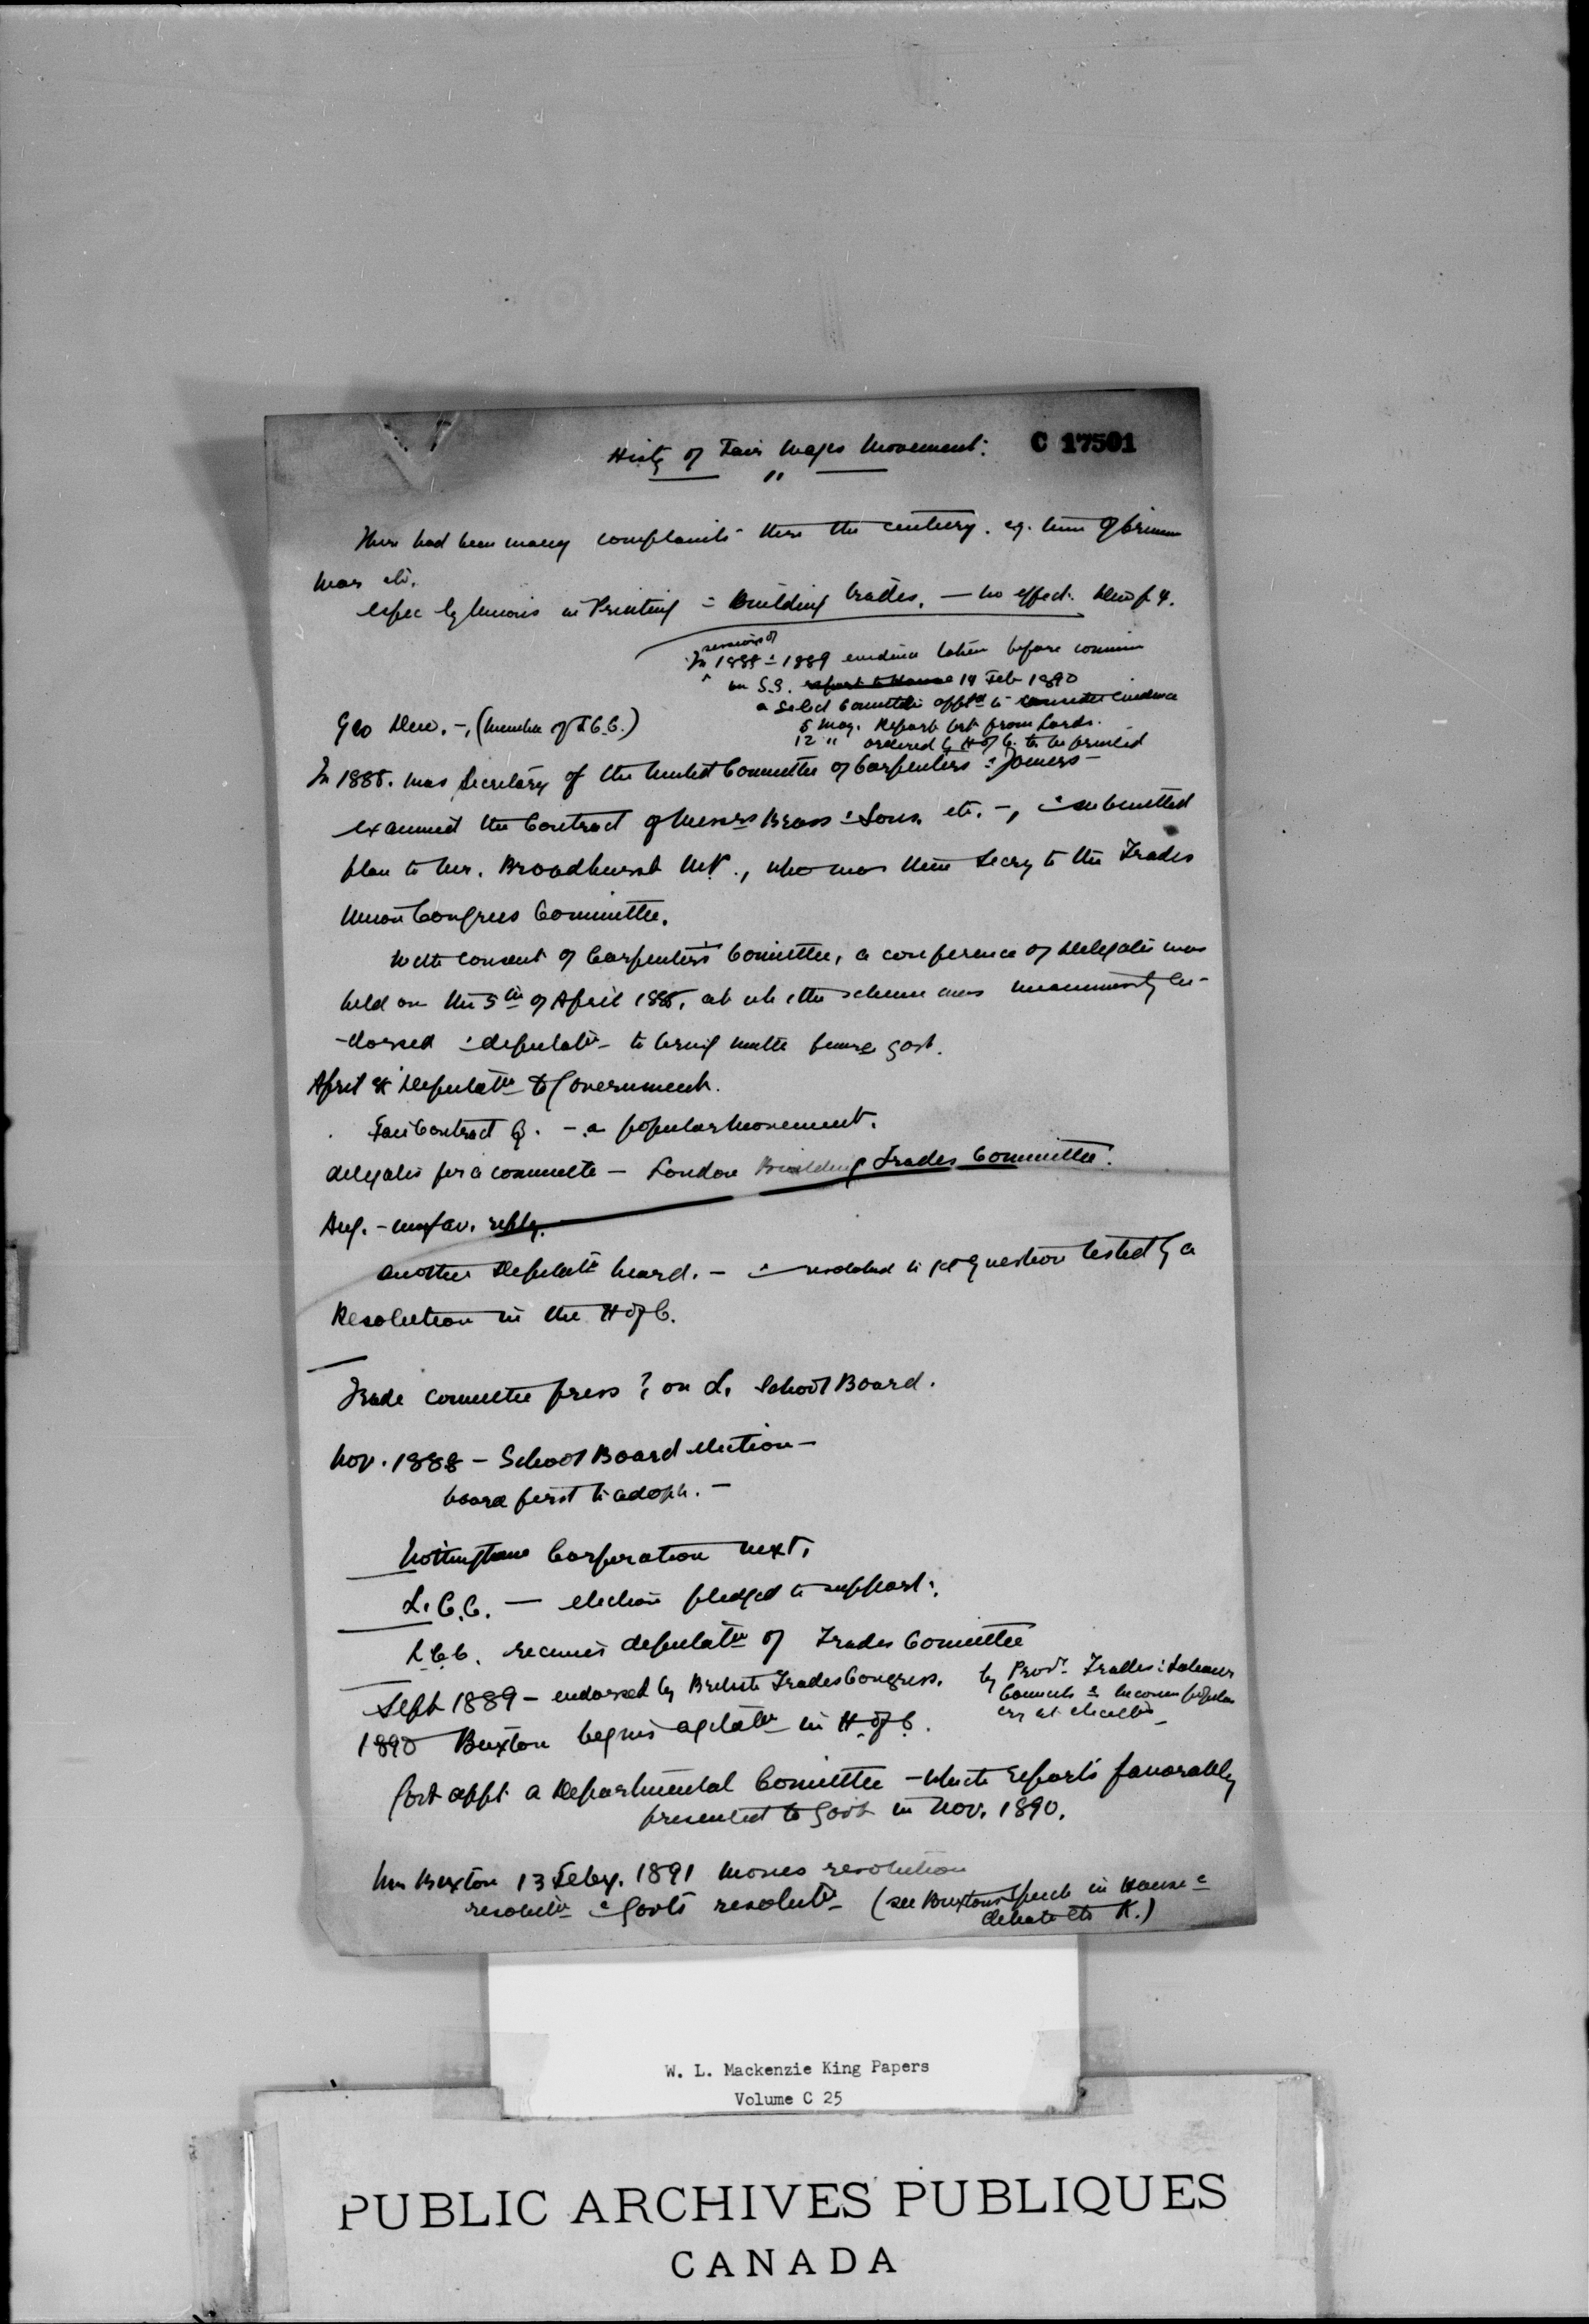 Histy of Fair Wages Movement. C 17501
"
There had been many complaints thro the century. eg. time of Crimean
War etc.
espec by Unions in Printing & Building trades, — no effect. Dew p 4.
sessions of
In 1888 & 1889 evidence taken before comm
on S.S. report to House 14 Feb 1890
a Select Committee apptd to consider evidence
Geo Dew. —, (member of L.C.C.)
5 May. Report brt from Lords.
12 " ordered by H of C. to be printed
In 1888. was Secretary of the United Committee of Carpenters & Joiners —
examined the Contract of Messrs Brass & Sons, etc. —, & submitted
plan to Mr. Broadhurst M.P., who was then Secry to the Trades
Union Congress Committee.
With consent of Carpenters' Comittee, a conference of Delegates was
held on the 5th of April 1888, at wh. the scheme was unanimously en-
-dorsed & deputatn to bring matter before govt.
April Deputatn to Government.
Fair Contract — a popular movement.
delegates for a committe — London Building Trades Committee.
Aug. — unfav. reply.
another Deputatn heard. — & resolved to get question tested by a
Resolution in the H of C.
Trade committee press ? on L. School Board.
Nov. 1888 — School Board election —
board first to adopt. —
Nottingham Corporation next.
L.C.C. — election pledged to support.
L.C.C. receives deputatn of Trades Comittee
Sept 1889 — endorsed by British Trades Congress. by Provl Trades & Labour
Councils & becomes popular
cry at electns —
1890 Buxton begins agitatn in H of C.
Govt appt a Departmental Comittee — which reports favorably
presented to Govt in Nov. 1890.
Mr Buxton 13 Feby. 1891 moves resolution
resolutn & Govts resolutn (see Buxtons speech in House &
debate etc K.)
W. L. Mackenzie King Papers
Volume C 25
PUBLIC ARCHIVES PUBLIQUES
CANADA